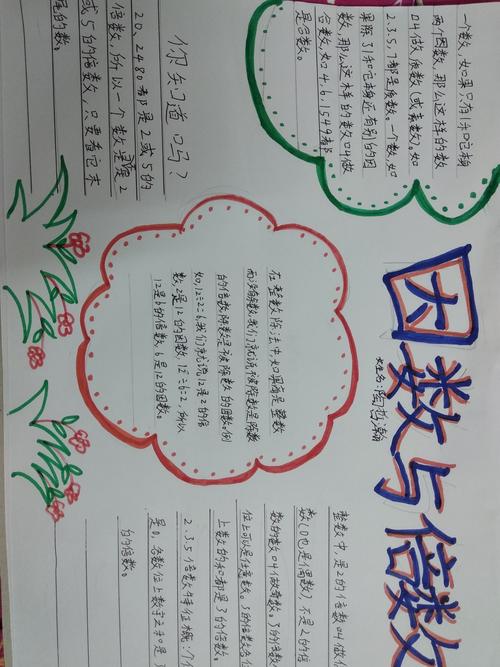 因数与倍数
姓名:陶哲瀚
一个数,如果只有1和它本身
两个因数,那么这样的数
叫做质数(或素数)。如
2.3.5.7都是质数。一个数,如
果除了1和它本身还有别的因
数,那么这样的数叫做
合数,如4.6.15.49都
是合数。
在整数除法中,如果商是整数
而没有余数,我们就说被除数是除数
的倍数,除数是被除数的因数。例
如,12÷2=6,我们就说12是2的倍
数,2是12的因数。12÷6=2,所以
12是6的倍数,6是12的因数。
整数中,是2的倍数叫做
数(0也是偶数),不是2的倍
数的数叫做奇数。3的倍数
位上可以是任意数。5的倍数
上数的和都是3的倍数。
2.3.5倍数特征:个位
是0,各数位上数字之和是3
的倍数。
你知道吗?
20、2480都是2或5的
倍数,所以一个数是2
或5的倍数,只要看它末
尾的数。